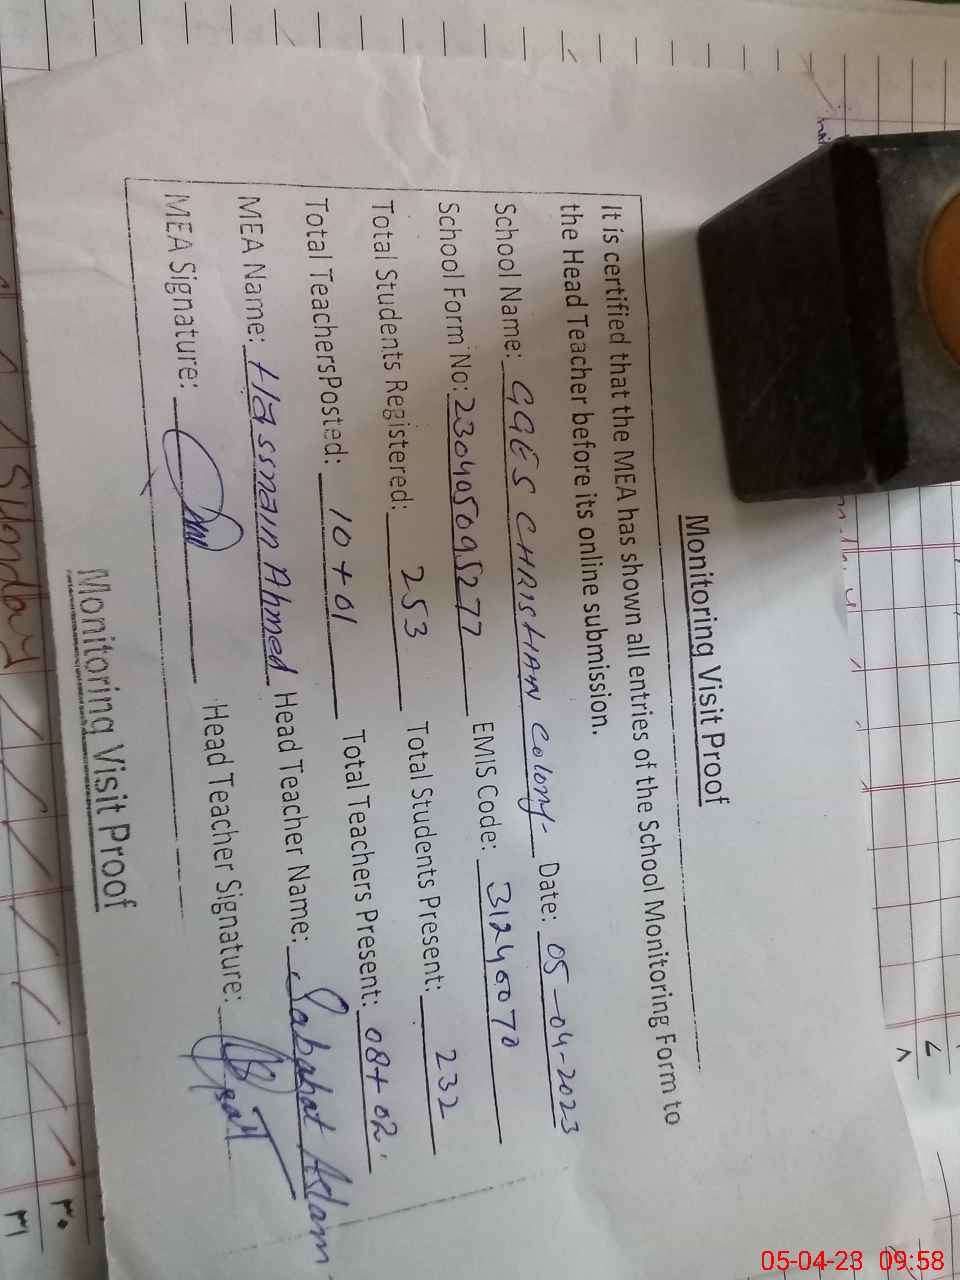 Monitoring Visit Proof
It is certified that the MEA has shown all entries of the School Monitoring Form to
the Head Teacher before its online submission.
School Name: GGES CHRISTIAN Colony- Date: 05-04-2023
School Form No: 230405095277 EMIS Code: 31246070
Total Students Registered: 253 Total Students Present: 232
Total TeachersPosted: 10+01 Total Teachers Present: 08+02
MEA Name: Hassnain Ahmed Head Teacher Name: Sabahat Aslam
MEA Signature: Head Teacher Signature:
Monitoring Visit Proof
05-04-23 09:58